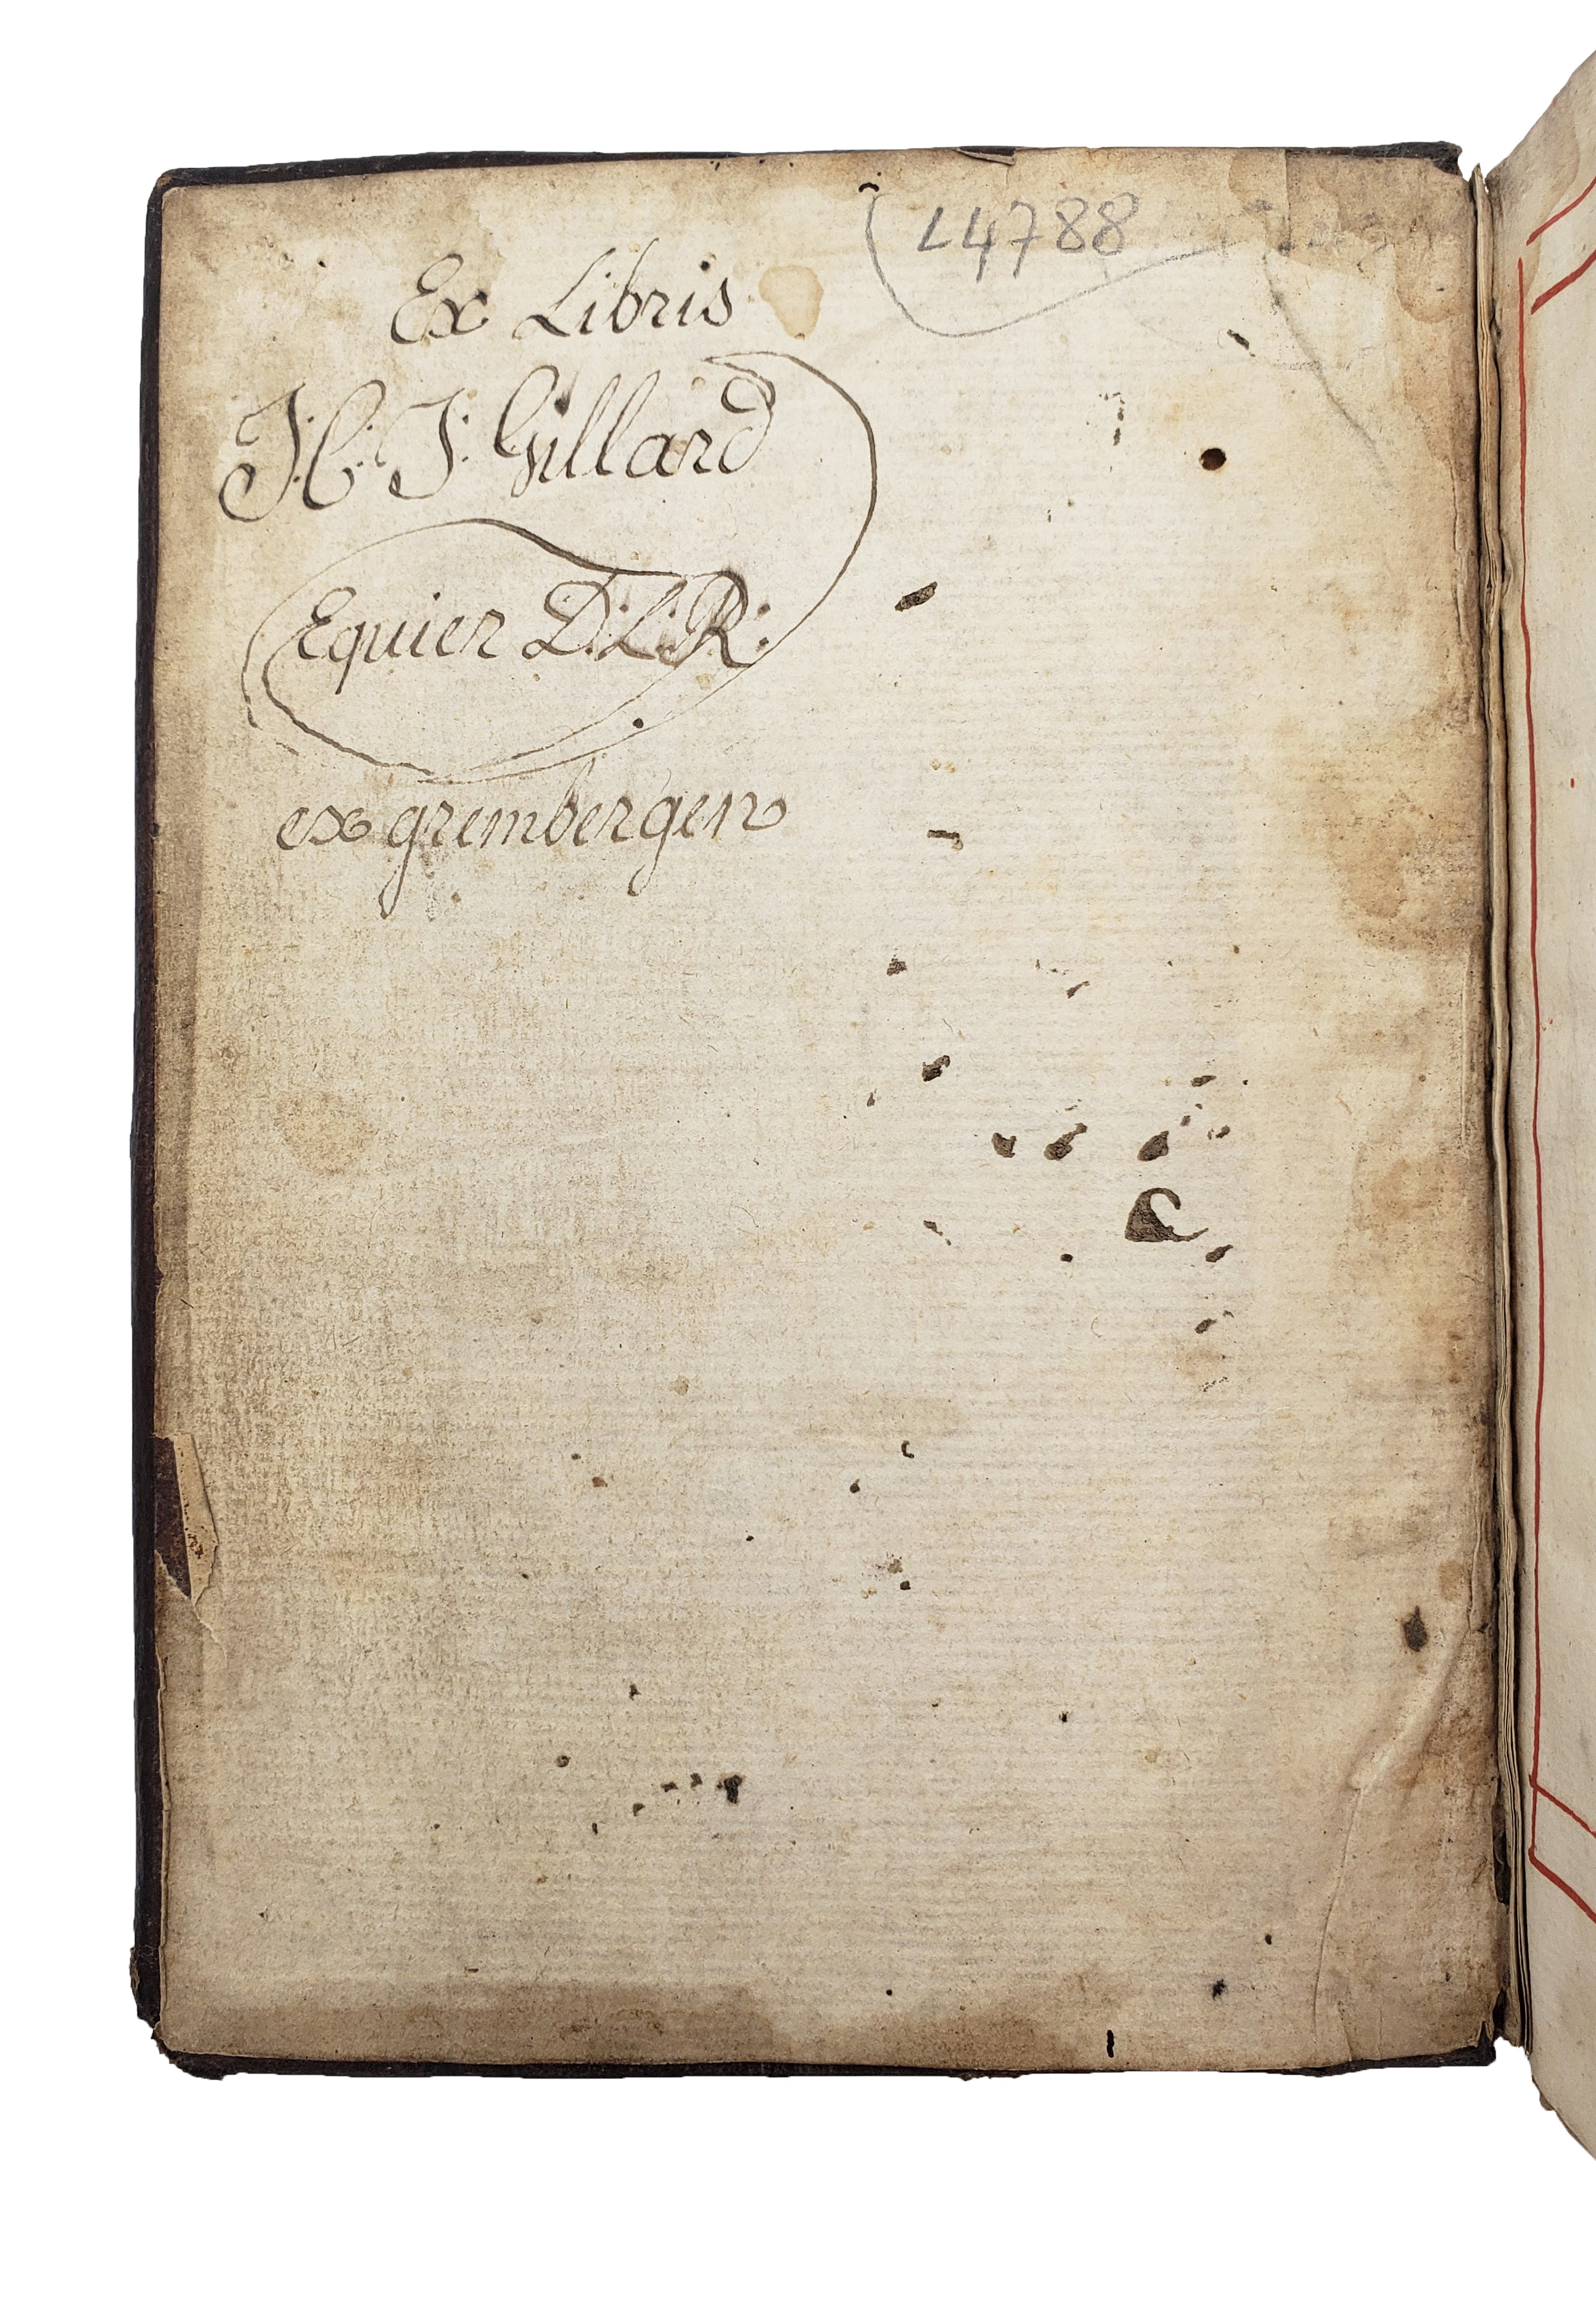 L4788
Ex Libris
J: C: J: Gillard
Equier D: L: R:
ex grembergen